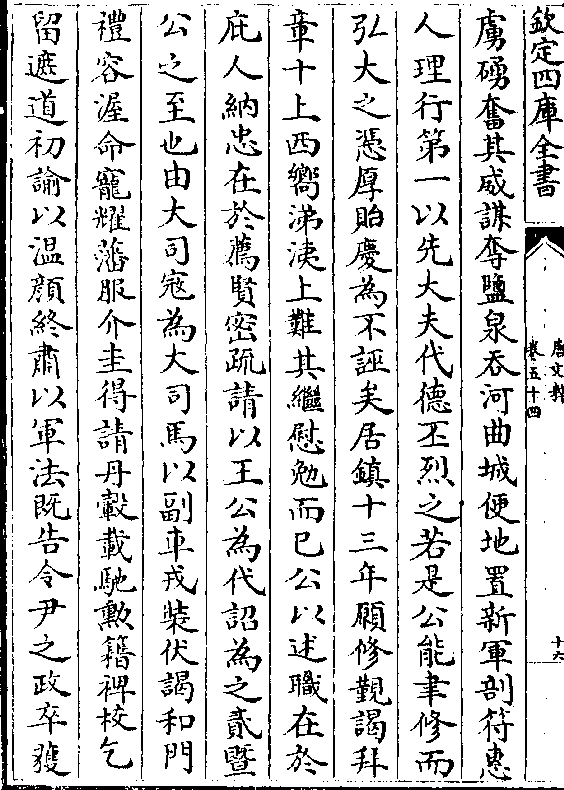 欽定四庫全書
唐文粹
卷五十四
十六
虜磞奮其威謀奪鹽泉吞河曲城便地置新軍剖符惠
人理行第一以先大夫代德丕烈之若是公能聿修而
弘大之憑厚貽慶為不誣矣居鎮十三年願修覲謁拜
章十上西嚮涕洟上難其繼慰勉而已公以述職在於
庇人納忠在於薦賢密疏請以王公為代詔為之貳暨
公之至也由大司寇為大司馬以副車戎裝伏謁和門
禮容渥命寵耀藩服介圭得請丹轂載馳勲籍裨校乞
留遮道初諭以温顔終肅以軍法既告令尹之政卒獲